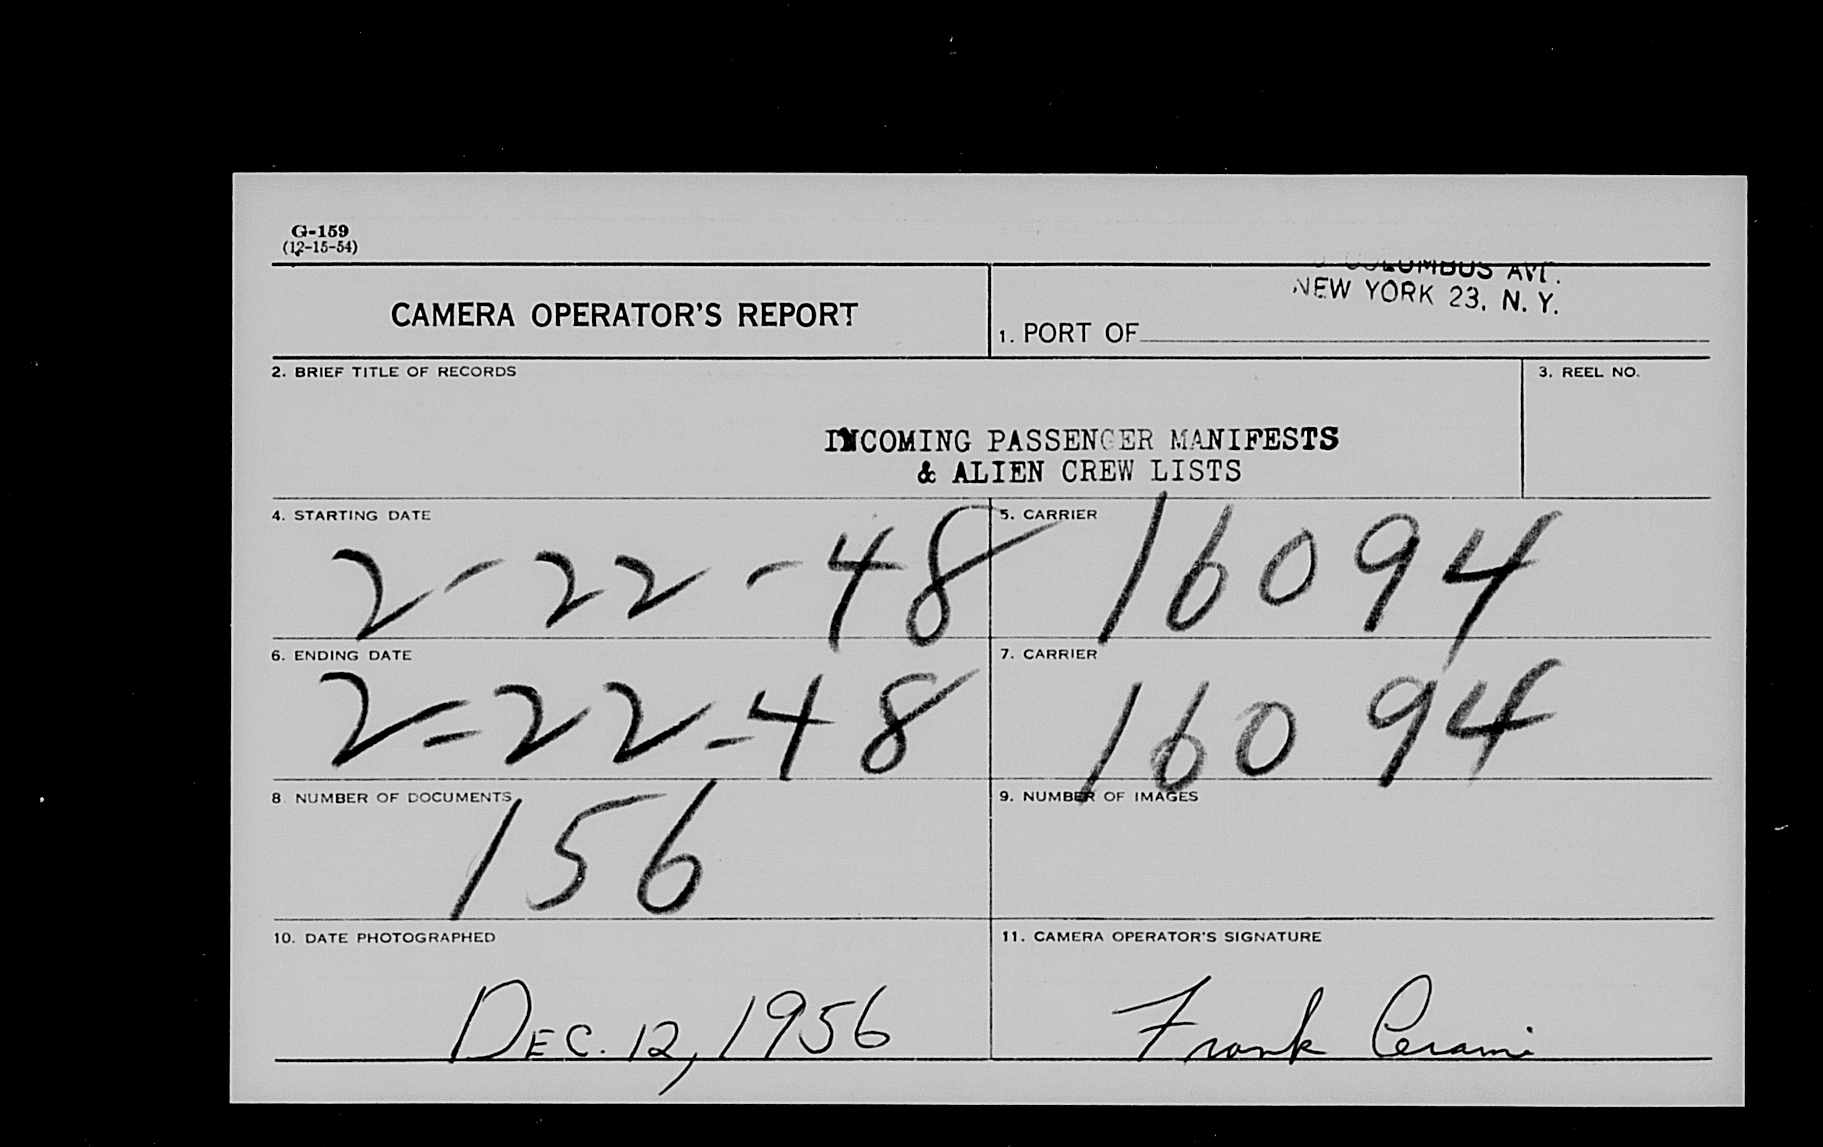 G-159
(12-15-54)
COLUMBUS AVE.
NEW YORK 23, N. Y.
CAMERA OPERATOR'S REPORT
1. PORT OF
2. BRIEF TITLE OF RECORDS
3. REEL NO.
INCOMING PASSENGER MANIFESTS
& ALIEN CREW LISTS
4. STARTING DATE
2-22-48
5. CARRIER
16094
6. ENDING DATE
2-22-48
7. CARRIER
16094
8. NUMBER OF DOCUMENTS
156
9. NUMBER OF IMAGES
10. DATE PHOTOGRAPHED
DEC. 12, 1956
11. CAMERA OPERATOR'S SIGNATURE
Frank Cerami